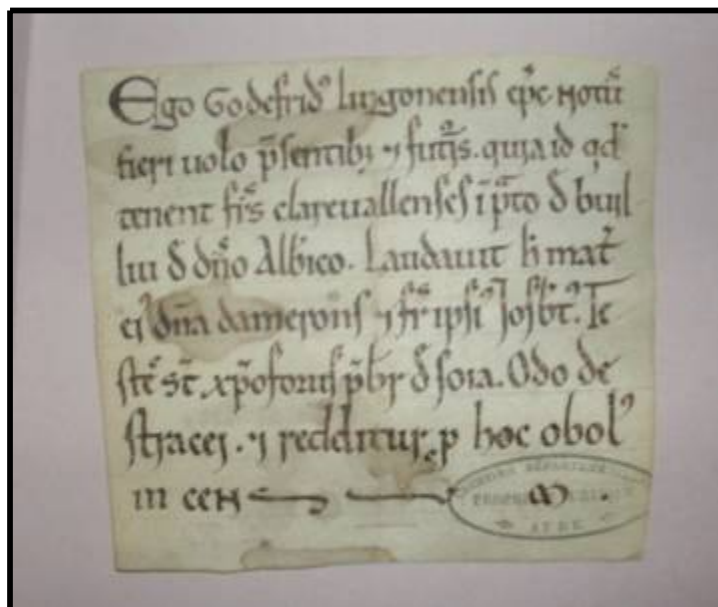 Ego Godefrid᷒ lingonensis ep̄c notū
fieri uolo p̄sentibꝫ ⁊ futuris. quia id qd̄
tenent fr̄s clareuallenses ī p̄to đ buil
đ dn̄o Albico. Laudauit h̄ mat̄
ei᷒ dn̄a dameronis ⁊ fr̄ ipsi᷒ Te
stes̄ sт̄. xp̄oforus p̄br đ Odo de
⁊ redditur p hoc obol᷒
in cen
AUBE